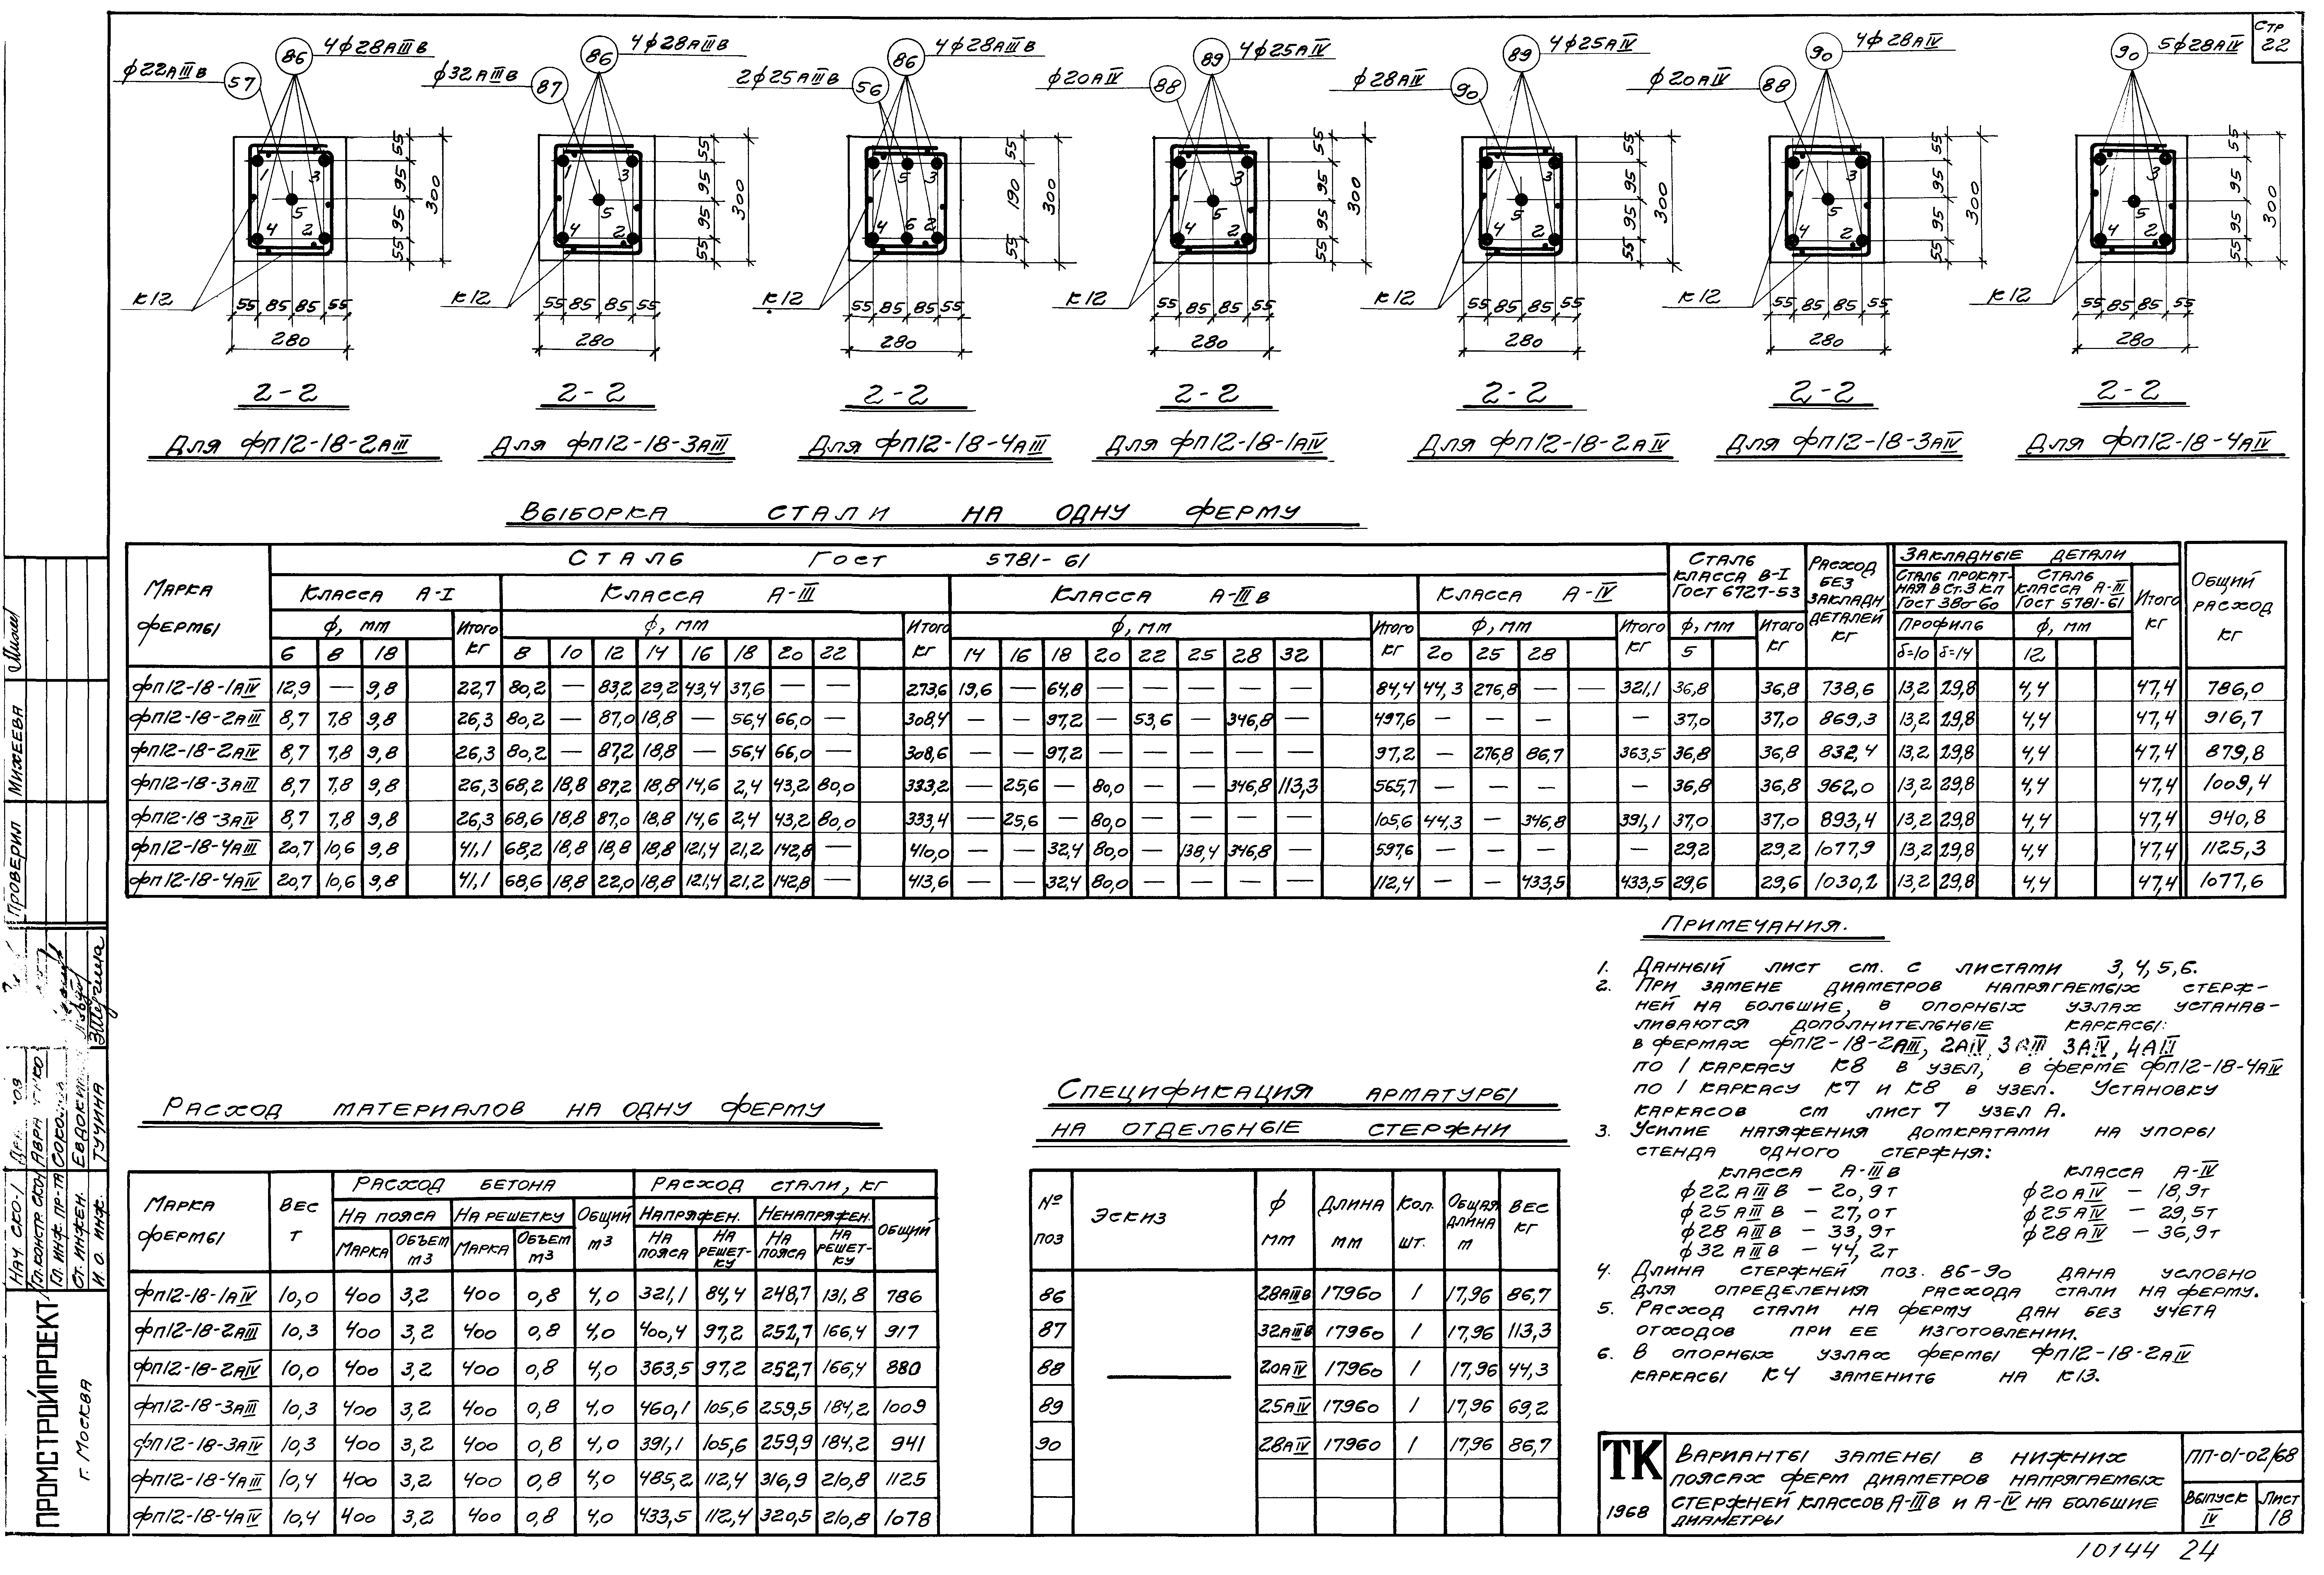 Стр 22
4ф28АIIIв 86 ф22АIIIв 57
4ф28АIIIв 86 ф32АIIIв 87
4ф28АIIIв 86 2ф25АIIIв 56
4ф25АIV 89 ф20АIV 88
4ф25АIV 89 ф28АIV 90
4ф28АIV 90 ф20АIV 88
5ф28АIV 90
1 3 5 4 2 К12 55 95 95 55 300 55 85 85 55 280
1 3 5 4 2 К12 55 95 95 55 300 55 85 85 55 280
1 5 3 4 6 2 К12 55 190 55 300 55 85 85 55 280
1 3 5 4 2 К12 55 95 95 55 300 55 85 85 55 280
1 3 5 4 2 К12 55 95 95 55 300 55 85 85 55 280
1 3 5 4 2 К12 55 95 95 55 300 55 85 85 55 280
1 3 5 4 2 К12 55 95 95 55 300 55 85 85 55 280
2-2 2-2 2-2 2-2 2-2 2-2 2-2
Для ФП12-18-2АIII Для ФП12-18-3АIII Для ФП12-18-4АIII Для ФП12-18-1АIV Для ФП12-18-2АIV Для ФП12-18-3АIV Для ФП12-18-4АIV
Выборка стали на одну ферму
Марка фермы
Сталь Гост 5781-61
Класса А-I Класса А-III Класса А-IIIв Класса А-IV
Сталь класса В-I Гост 6727-53
Расход без закладн деталей кг
Закладные детали
Сталь прокатная В Ст.3 кп Гост 380-60
Сталь класса А-III Гост 5781-61
Итого кг
Общий расход кг
ф, мм Итого кг ф, мм Итого кг ф, мм Итого кг ф, мм Итого кг ф, мм Итого кг Профиль ф, мм
6 8 18 8 10 12 14 16 18 20 22 14 16 18 20 22 25 28 32 20 25 28 5 δ=10 δ=14 12
ФП12-18-1АIV 12,9 — 9,8 22,7 80,2 — 83,2 29,2 43,4 37,6 — — 273,6 19,6 — 64,8 — — — — — 84,4 44,3 276,8 — — 321,1 36,8 36,8 738,6 13,2 29,8 4,4 47,4 786,0
ФП12-18-2АIII 8,7 7,8 9,8 26,3 80,2 — 87,0 18,8 — 56,4 66,0 — 308,4 — — 97,2 — 53,6 — 346,8 — 497,6 — — — — 37,0 37,0 869,3 13,2 29,8 4,4 47,4 916,7
ФП12-18-2АIV 8,7 7,8 9,8 26,3 80,2 — 87,2 18,8 — 56,4 66,0 — 308,6 — — 97,2 — — — — — 97,2 — 276,8 86,7 363,5 36,8 36,8 832,4 13,2 29,8 4,4 47,4 879,8
ФП12-18-3АIII 8,7 7,8 9,8 26,3 68,2 18,8 87,2 18,8 14,6 2,4 43,2 80,0 333,2 — 25,6 — 80,0 — — 346,8 113,3 565,7 — — — — 36,8 36,8 962,0 13,2 29,8 4,4 47,4 1009,4
ФП12-18-3АIV 8,7 7,8 9,8 26,3 68,6 18,8 87,0 18,8 14,6 2,4 43,2 80,0 333,4 — 25,6 — 80,0 — — — — 105,6 44,3 — 346,8 391,1 37,0 37,0 893,4 13,2 29,8 4,4 47,4 940,8
ФП12-18-4АIII 20,7 10,6 9,8 41,1 68,2 18,8 18,8 18,8 121,4 21,2 142,8 — 410,0 — — 32,4 80,0 — 138,4 346,8 — 597,6 — — — — 29,2 29,2 1077,9 13,2 29,8 4,4 47,4 1125,3
ФП12-18-4АIV 20,7 10,6 9,8 41,1 68,6 18,8 22,0 18,8 121,4 21,2 142,8 — 413,6 — — 32,4 80,0 — — — — 112,4 — — 433,5 433,5 29,6 29,6 1030,2 13,2 29,8 4,4 47,4 1077,6
Примечания.
1. Данный лист см. с листами 3, 4, 5, 6.
2. При замене диаметров напрягаемых стерж-
ней на большие, в опорных узлах устанав-
ливаются дополнительные каркасы:
в фермах ФП12-18-2АIII, 2АIV, 3АIII, 3АIV, 4АIII
по 1 каркасу К8 в узел, в ферме ФП12-18-4АIV
по 1 каркасу К7 и К8 в узел. Установку
каркасов см лист 7 узел А.
3. Усилие натяжения домкратами на упоры
стенда одного стержня:
класса А-IIIв класса А-IV
ф22АIIIв – 20,9т ф20АIV – 18,9т
ф25АIIIв – 27,0т ф25АIV – 29,5т
ф28АIIIв – 33,9т ф28АIV – 36,9т
ф32АIIIв – 44,2т
4. Длина стержней поз. 86-90 дана условно
для определения расхода стали на ферму.
5. Расход стали на ферму дан без учета
отходов при ее изготовлении.
6. В опорных узлах фермы ФП12-18-2АIV
каркасы К4 заменить на К13.
Расход материалов на одну ферму
Марка фермы Вес т Расход бетона Расход стали, кг
На пояса На решетку Общий м3 Напряжен. Ненапряжен. Общий
Марка Объем м3 Марка Объем м3 На пояса На решет-ку На пояса На решет-ку
ФП12-18-1АIV 10,0 400 3,2 400 0,8 4,0 321,1 84,4 248,7 131,8 786
ФП12-18-2АIII 10,3 400 3,2 400 0,8 4,0 400,4 97,2 252,7 166,4 917
ФП12-18-2АIV 10,0 400 3,2 400 0,8 4,0 363,5 97,2 252,7 166,4 880
ФП12-18-3АIII 10,3 400 3,2 400 0,8 4,0 460,1 105,6 259,5 184,2 1009
ФП12-18-3АIV 10,3 400 3,2 400 0,8 4,0 391,1 105,6 259,9 184,2 941
ФП12-18-4АIII 10,4 400 3,2 400 0,8 4,0 485,2 112,4 316,9 210,8 1125
ФП12-18-4АIV 10,4 400 3,2 400 0,8 4,0 433,5 112,4 320,5 210,8 1078
Спецификация арматуры
на отдельные стержни
№ поз Эскиз ф мм Длина мм Кол. шт. Общая длина м Вес кг
86 28АIIIв 17960 1 17,96 86,7
87 32АIIIв 17960 1 17,96 113,3
88 20АIV 17960 1 17,96 44,3
89 25АIV 17960 1 17,96 69,2
90 28АIV 17960 1 17,96 86,7
ТК 1968
Варианты замены в нижних
поясах ферм диаметров напрягаемых
стержней классов А-IIIв и А-IV на большие
диаметры
ПП-01-02/68
Выпуск IV
Лист 18
10144 24
Проверил Михеева
Нач СКО-1
Гл.констр.СКО
Гл. инж. пр-та
Ст. инжен.
И. о. инж. Тучина
ПРОМСТРОЙПРОЕКТ
г. Москва